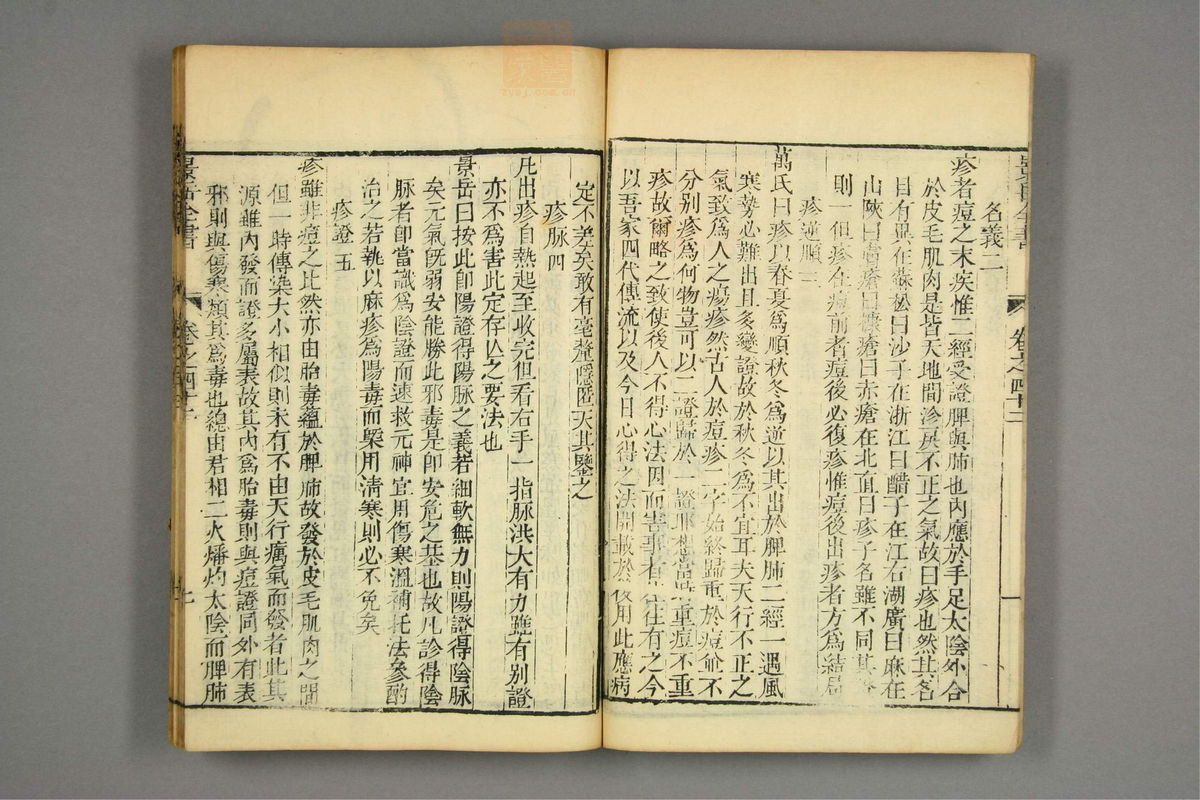 名義二
疹者痘之末疾惟二經受證脾與肺也內應於手足太陰外合
於皮毛肌肉是皆天地間沴戾不正之氣故曰疹也然其名
目有異在蘇松曰沙子在浙江曰醋子在江右湖廣曰麻在
山陝曰膚瘡曰糠瘡曰赤瘡在北直曰疹子名雖不同其
則一但疹在痘前者痘後必復疹惟痘後出疹者方為結局
疹逆順三
萬氏曰疹以春夏為順秋冬為逆以其出於脾肺二經一遇風
寒勢必難出且多變證故於秋冬為不宜耳夫天行不正之
氣致為人之瘍疹然古人於痘疹二字始終歸重於痘並不
分別疹為何物豈可以二證歸於一證耶想當時重痘不重
疹故爾略之致使後人不得心法因而害事者往往有之今
以吾家四代傳流以及今日心得之法開載於後用此應病
定不差矣敢有毫釐隱匿天其鑒之
疹脉四
凡出疹自熱起至收完但看右手一指脉洪大有力雖有別證
亦不爲害此定存亾之要法也
景岳曰按此卽陽證得陽脉之義若細軟無力則陽證得陰脉
矣元氣旣弱安能勝此邪毒是卽安危之基也故凡診得陰
脉者卽當識爲陰證而速救元神宜用傷寒溫補托法參酌
治之若執以麻疹爲陽毒而槩用清寒則必不免矣
疹證五
疹雖非痘之比然亦由胎毒蘊於脾肺故發於皮毛肌肉之間
但一時傳染大小相似則未有不由天行癘氣而發者此其
源雖內發而證多屬表故其內爲胎毒則與痘證同外有表
邪則與傷寒類其爲毒也總由君相二火燔灼太陰而脾肺
景岳全書
卷之四十三